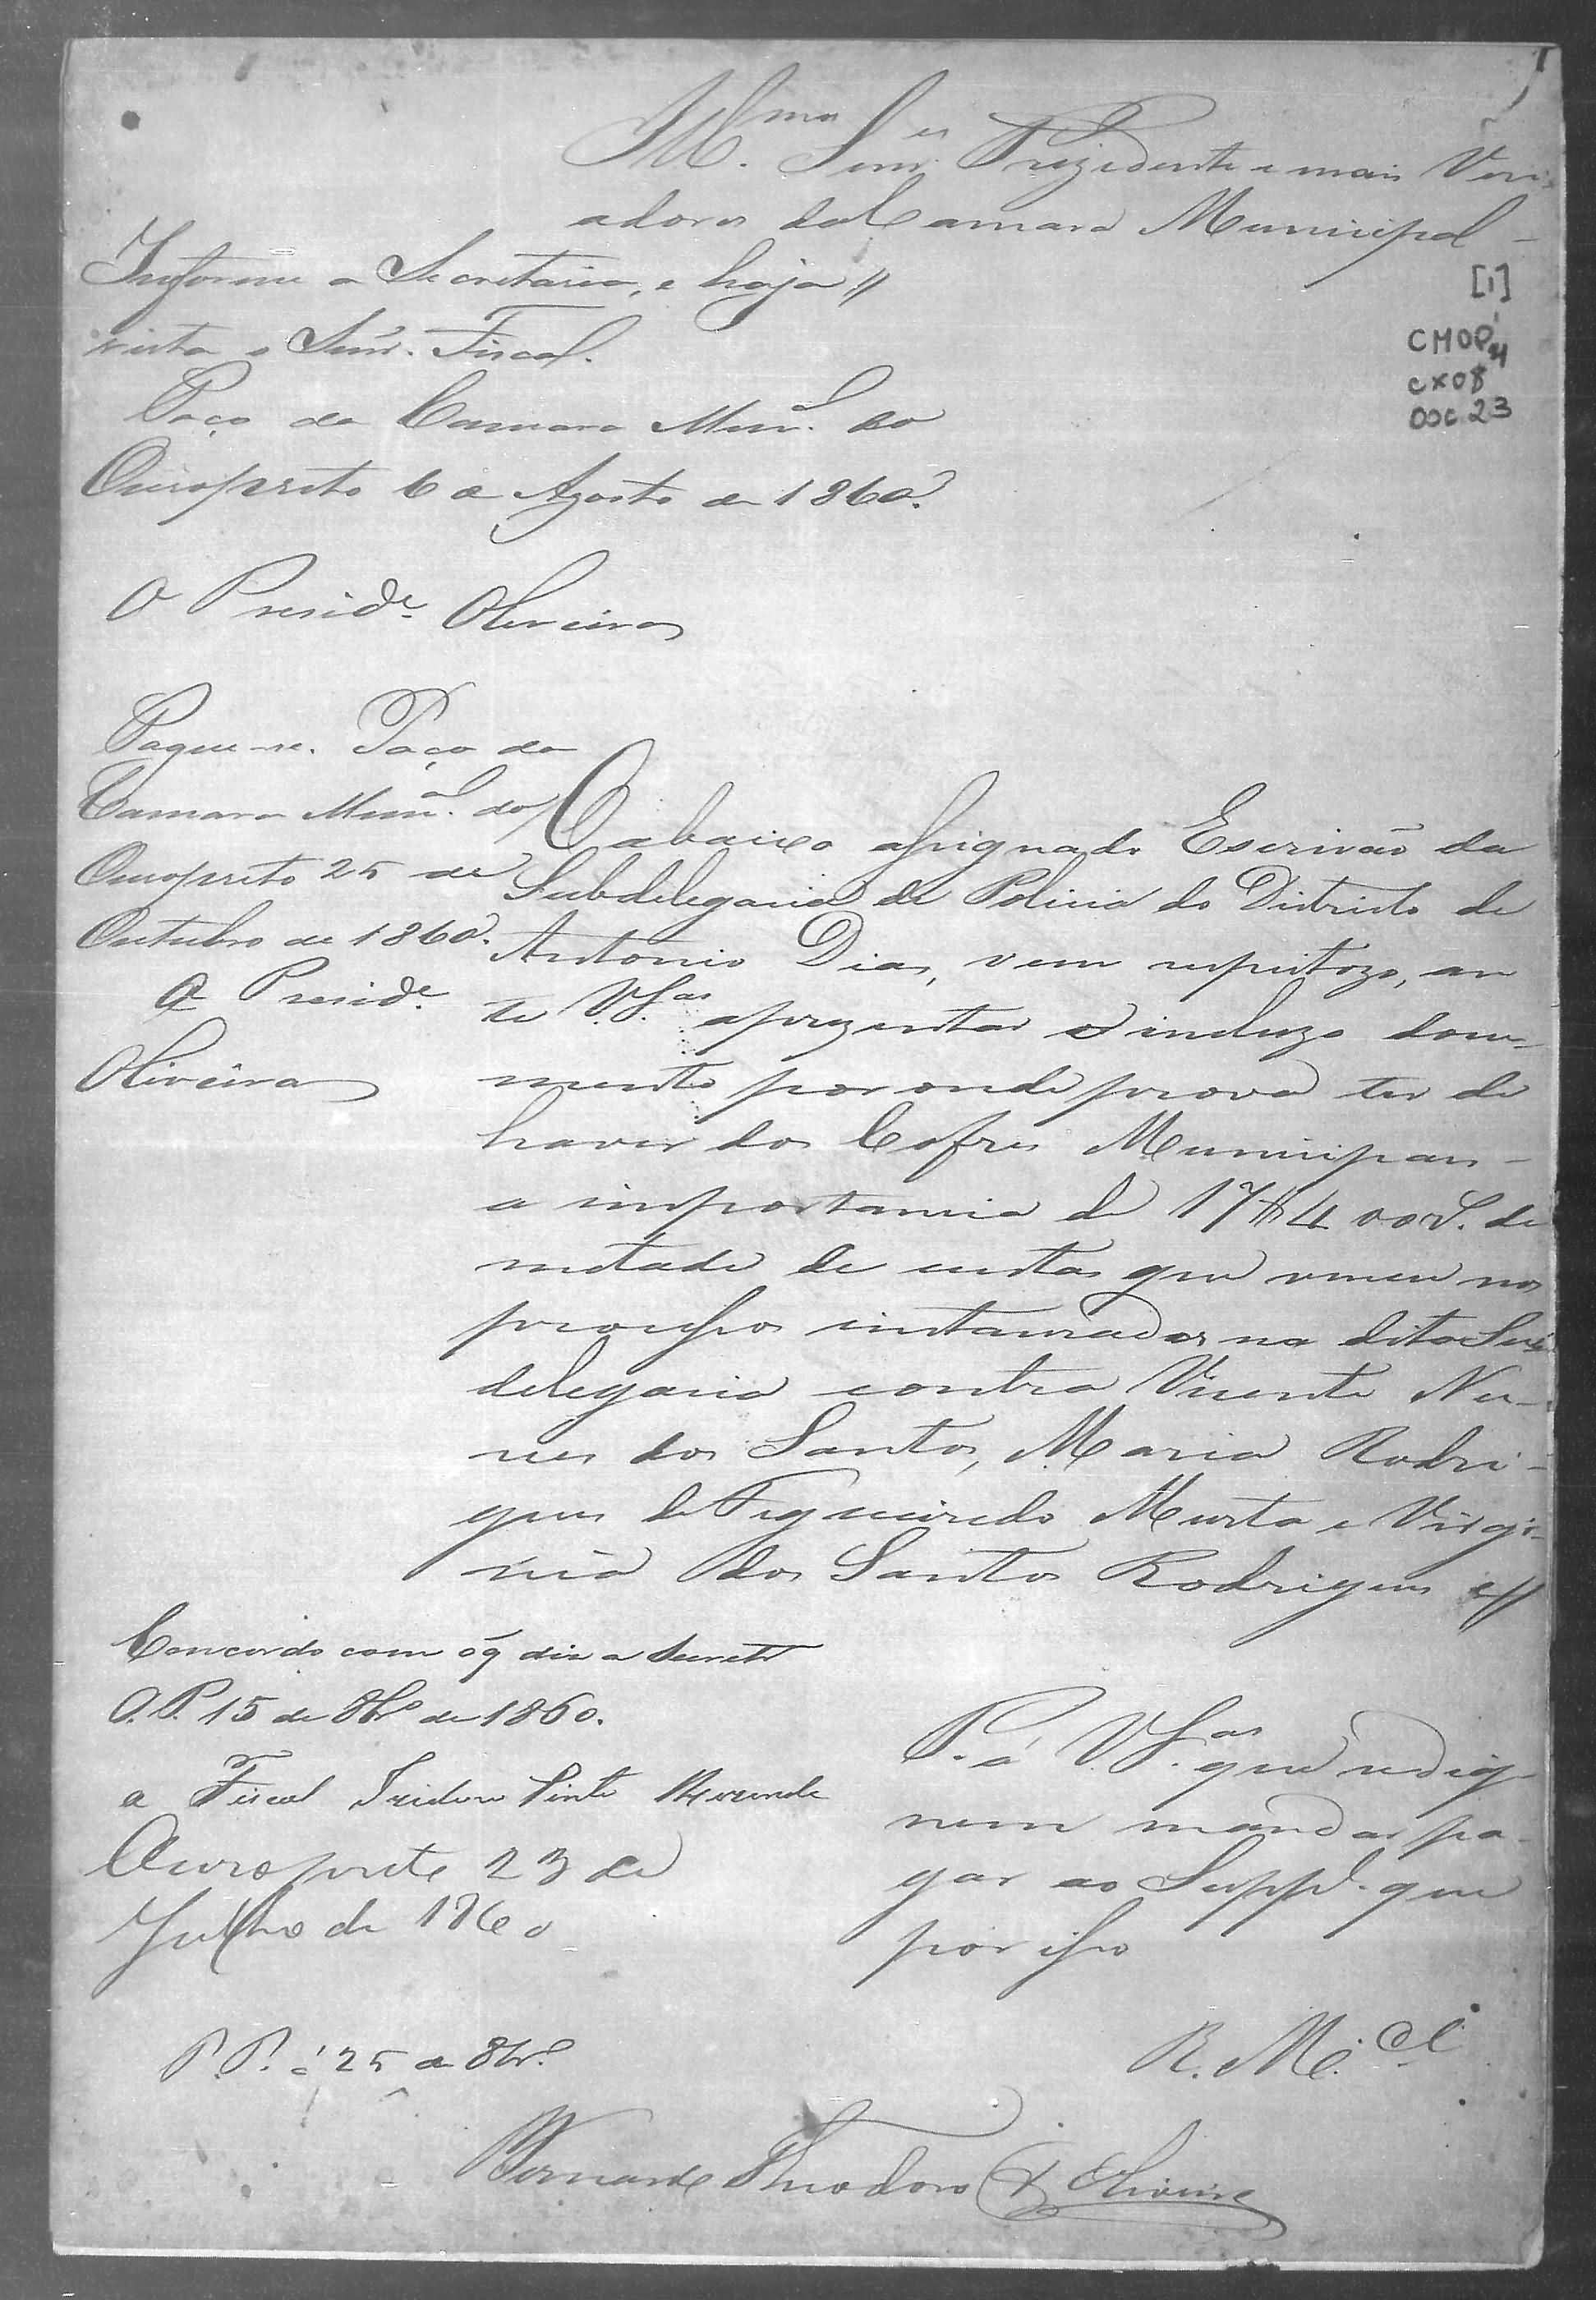 Ill.mos Senr.es Prezidente e mais Veri
adores da Camara Municipal
Informe a Secretaria, e haja
vista o Senr. Fiscal.
Paço da Camara Mun.al do
Ouropreto 6 de Agosto de 1860.
O Presid.e Oliveira
[1]
CMOP
CX08
DOC. 23
Pague-se. Paço da
Camara Mun.al do
Ouropreto 25 de
Outubro de 1860.
O Presid.e
Oliveira
O abaixo assignado Escrivão da
Subdelegacia de Policia do Districto de
Antonio Dias, vem respeitozo, an
te V.S.as aprezentar o incluzo docu-
mento por onde prova ter de
haver dos Cofres Municipaes
a importancia de 17$400 rs. de
metade de custas que venceu nos
processos instaurados na dita Sub
delegacia contra Vicente Nu-
nes dos Santos, Maria Rodri-
gues de Figueiredo Murta e Virgi-
nia dos Santos Rodrigues
P. a V.S.as que se dig-
nem mandar pa-
gar ao Supp.e que
por isso
R. M.ce
Concordo com o q diz a Secret.a
O.P. 15 de 8br.o de 1860.
o Fiscal Izidoro Pinto Rezende
Ouro preto 23 de
Julho de 1860
P.P. a 25 de 8br.o
Bernardo Theodoro d' Oliveira